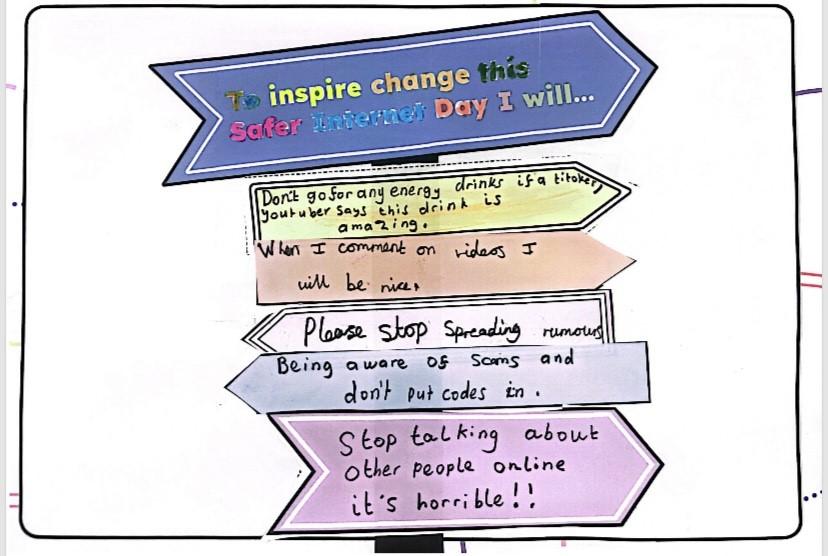 To inspire change this
Safer Internet Day I will...
Don't go for any energy drinks if a titoker,
youtuber says this drink is
amazing.
When I comment on videos I
will be nice.
Please stop spreading rumours
Being aware of scams and
don't put codes in.
Stop talking about
other people online
it's horrible!!